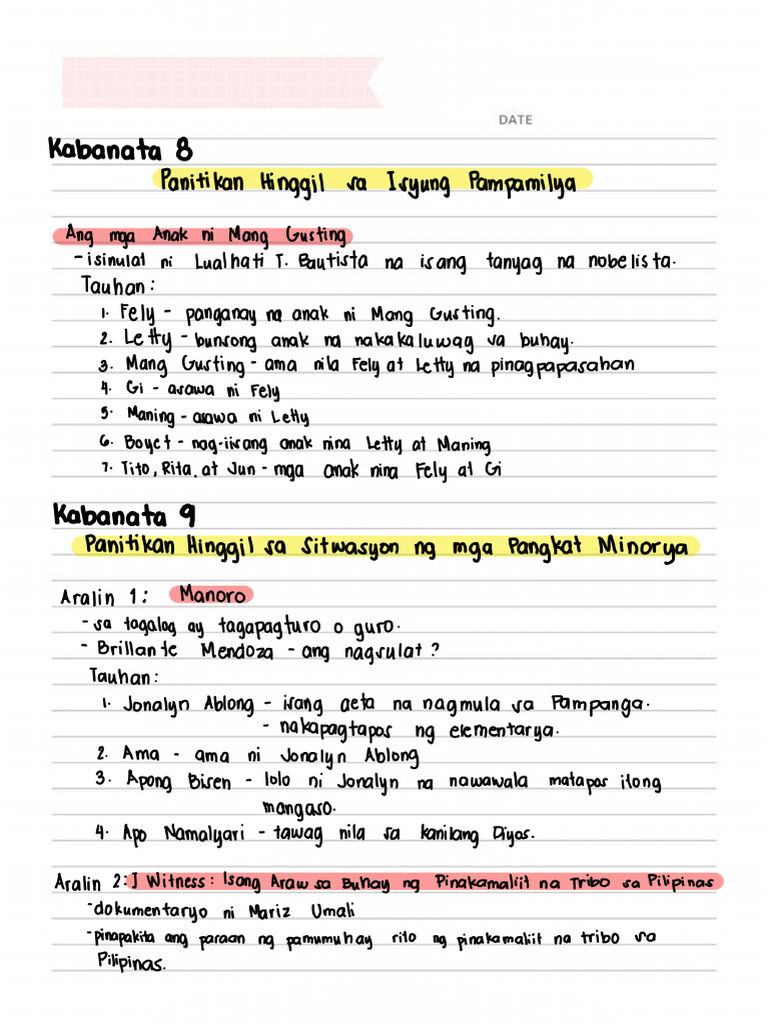 DATE
Kabanata 8
Panitikan Hinggil sa Isyung Pampamilya
Ang mga Anak ni Mang Gusting
- isinulat ni Lualhati T. Bautista na isang tanyag na nobelista.
Tauhan:
1. Fely - panganay na anak ni Mang Gusting.
2. Letty - bunsong anak na nakakaluwag sa buhay.
3. Mang Gusting - ama nila Fely at Letty na pinagpapasahan
4. Gi - asawa ni Fely
5. Maning - asawa ni Letty
6. Boyet - nag-iisang anak nina Letty at Maning
7. Tito, Rita, at Jun - mga anak nina Fely at Gi
Kabanata 9
Panitikan Hinggil sa Sitwasyon ng mga Pangkat Minorya
Aralin 1: Manoro
- sa tagalog ay tagapagturo o guro.
- Brillante Mendoza - ang nagsulat?
Tauhan:
1. Jonalyn Ablong - isang aeta na nagmula sa Pampanga.
- nakapagtapos ng elementarya.
2. Ama - ama ni Jonalyn Ablong
3. Apong Bisen - lolo ni Jonalyn na nawawala matapos itong
mangaso.
4. Apo Namalyari - tawag nila sa kanilang Diyos.
Aralin 2: I Witness: Isang Araw sa Buhay ng Pinakamaliit na Tribo sa Pilipinas
- dokumentaryo ni Mariz Umali
- pinapakita ang paraan ng pamumuhay rito ng pinakamaliit na tribo sa
Pilipinas.